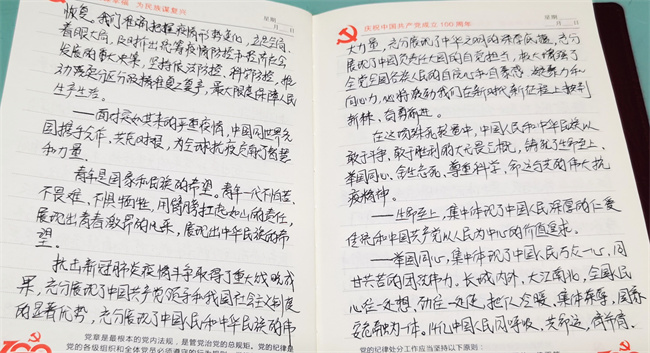 为民族谋复兴
星期
月 日
恢复。我们准确把握疫情形势变化，立足全局、
着眼大局，及时作出统筹疫情防控和经济社会
发展的重大决策，坚持依法防控、科学防控，推
动落实分区分级精准复工复产，最大限度保障人民
生产生活。
——面对突如其来的严重疫情，中国同世界各
国携手合作、共克时艰，为全球抗疫贡献了智慧
和力量。
青年是国家和民族的希望。青年一代不怕苦、
不畏难、不惧牺牲，用臂膀扛起如山的责任，
展现出青春激昂的风采，展现出中华民族的希
望。
抗击新冠肺炎疫情斗争取得了重大战略成
果，充分展现了中国共产党领导和我国社会主义制度
的显著优势，充分展现了中国人民和中华民族的伟
党章是最根本的党内法规，是管党治党的总规矩。党的纪律是
党的各级组织和全体党员必须遵守的行为规则
庆祝中国共产党成立100周年
星期
月 日
大力量，充分展现了中华文明的深厚底蕴，充分
展现了中国负责任大国的自觉担当，极大增强了
全党全国各族人民的自信心和自豪感、凝聚力和
向心力，必将激励我们在新时代新征程上披荆
斩棘、奋勇前进。
在这场殊死较量中，中国人民和中华民族以
敢于斗争、敢于胜利的大无畏气概，铸就了生命至上、
举国同心、舍生忘死、尊重科学、命运与共的伟大抗
疫精神。
——生命至上，集中体现了中国人民深厚的仁爱
传统和中国共产党人以人民为中心的价值追求。
——举国同心，集中体现了中国人民万众一心、同
甘共苦的团结伟力。长城内外、大江南北，全国人民
心往一处想、劲往一处使，把个人冷暖、集体荣辱、国家
安危融为一体。14亿中国人民同呼吸、共命运，肩并肩、
党的纪律处分工作应当坚持以下原则：